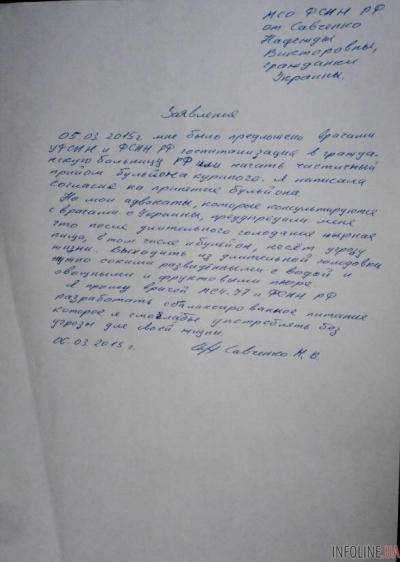 МСО ФСИН РФ
от Савченко
Надежды
Викторовны,
гражданки
Украины.
Заявление
05.03.2015г. мне было предложено врачами
УФСИН и ФСИН РФ госпитализация в граждан-
скую больницу РФ или начать частичный
прийом бульйона куриного. Я написала
согласие на принятие бульйона.
Но мои адвокаты, которые консультируются
с врачами с Украины, предупредили меня
что после длительного голодание жирная
пища, в том числе и бульйон, несёт угрозу
жизни. Выходить из длительной голодовки
нужно соками разведёнными с водой и
овощными и фруктовыми пюре.
Я прошу врачей МСЧ-77 и ФСИН РФ
разработать сбалансированное питание
которое я смогла бы употреблять без
угрозы для своей жизни.
06.03.2015г. Савченко Н.В.
INFOLINE.UA